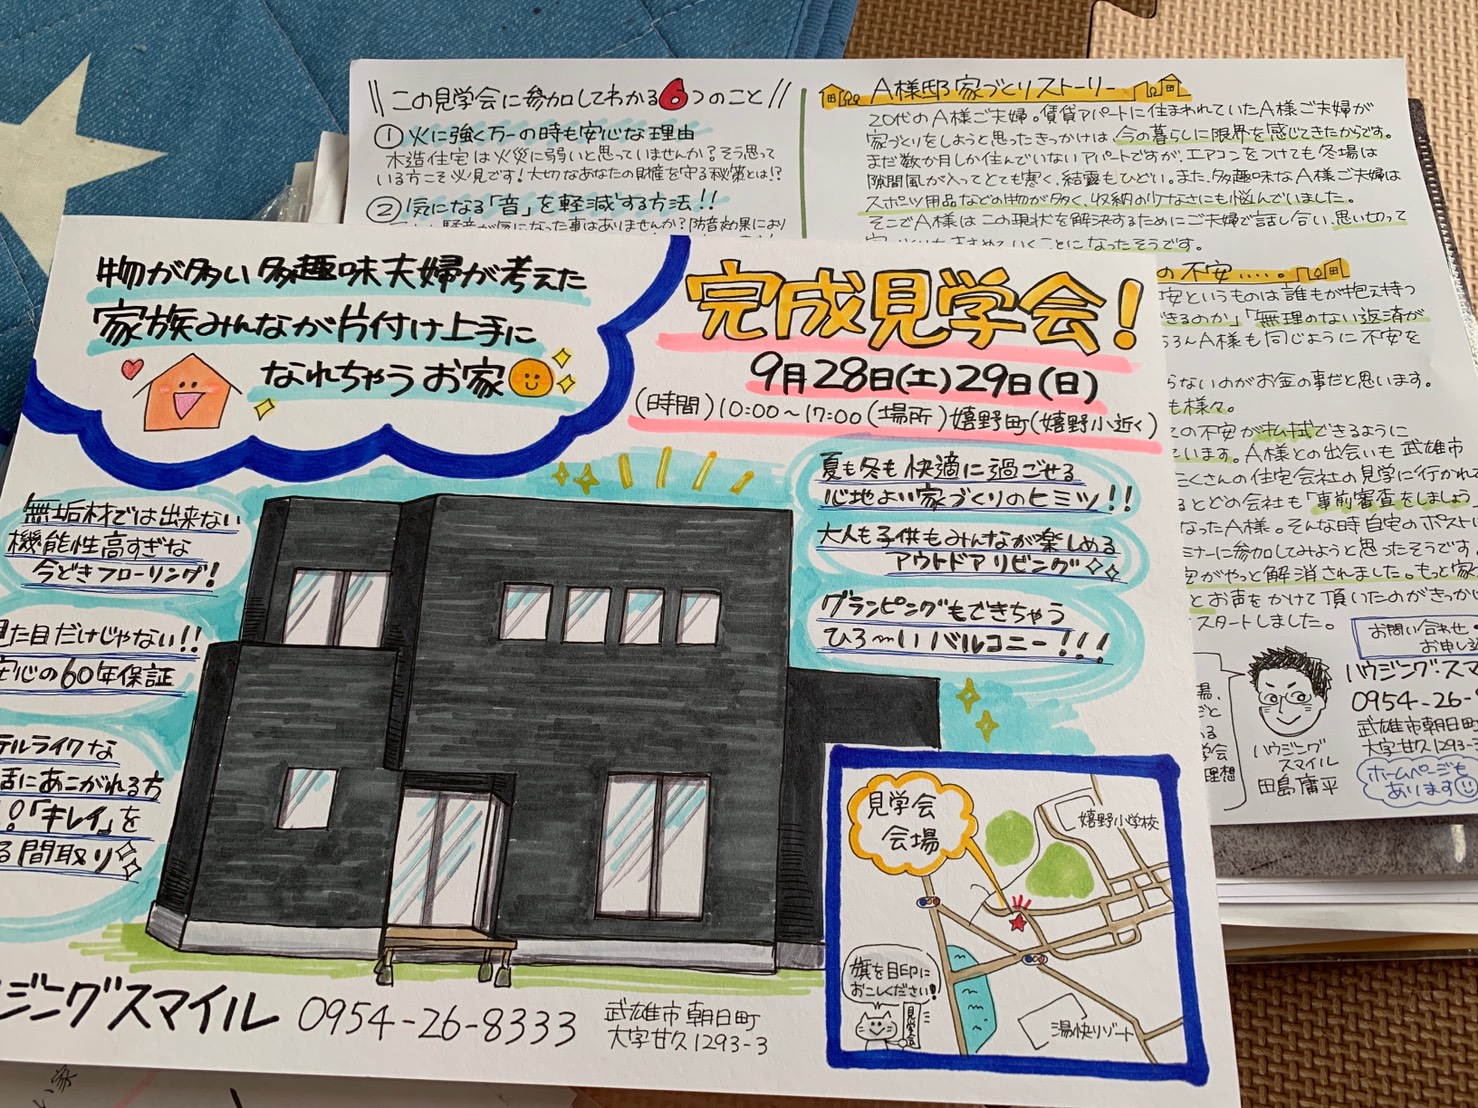 物が多い多趣味夫婦が考えた
家族みんなが片付け上手に
なれちゃうお家
完成見学会!
9月28日(土)29日(日)
(時間)10:00〜17:00(場所)嬉野町(嬉野小近く)
無垢材では出来ない
機能性高すぎな
今どきフローリング!
た目だけじゃない!!
心の60年保証
テルライクな
にあこがれる方
!「キレイ」を
る間取り
夏も冬も快適に過ごせる
心地よい家づくりのヒミツ!!
大人も子供もみんなが楽しめる
アウトドアリビング
グランピングもできちゃう
ひろ〜いバルコニー!!!
見学会
会場
嬉野小学校
湯快リゾート
旗を目印に
おこしください!
見学会
ジングスマイル 0954-26-8333
武雄市朝日町
大字甘久1293-3
\\この見学会に参加してわかる6つのこと//
①火に強く万一の時も安心な理由
木造住宅は火災に弱いと思っていませんか?そう思って
いる方こそ必見です!大切なあなたの財産を守る秘策とは!?
②気になる「音」を軽減する方法!!
騒音が気になった事はありませんか?防音効果により
A様邸家づくりストーリー
20代のA様ご夫婦。賃貸アパートに住まわれていたA様ご夫婦が
家づくりをしようと思ったきっかけは、今の暮らしに限界を感じてきたからです。
まだ数か月しか住んでいないアパートですが、エアコンをつけても冬場は
隙間風が入ってとても寒く、結露もひどい。また、多趣味なA様ご夫婦は
スポーツ用品などの物が多く、収納の少なさにも悩んでいました。
そこでA様はこの現状を解決するためにご夫婦で話し合い、思い切って
家づくりをすすめていくことになったそうです。
の不安.....。
安というものは誰もが抱え持つ
できるのか」「無理のない返済が
ろんA様も同じように不安を
らないのがお金の事だと思います。
も様々。
この不安が払拭できるように
ています。A様との出会いも武雄市
たくさんの住宅会社の見学に行かれ
るとどの会社も「事前審査をしましょう
なったA様。そんな時自宅のポストに
ミナーに参加してみようと思ったそうです。
安がやっと解消されました。もっと家
とお声をかけて頂いたのがきっかけ
スタートしました。
お問い合わせ・
お申し込
ハウジング・スマ
0954-26-
武雄市朝日町
大字甘久1293-
ホームページも
あります
ハウジング
スマイル
田島庸平
場、
だと
いる
学会
理想